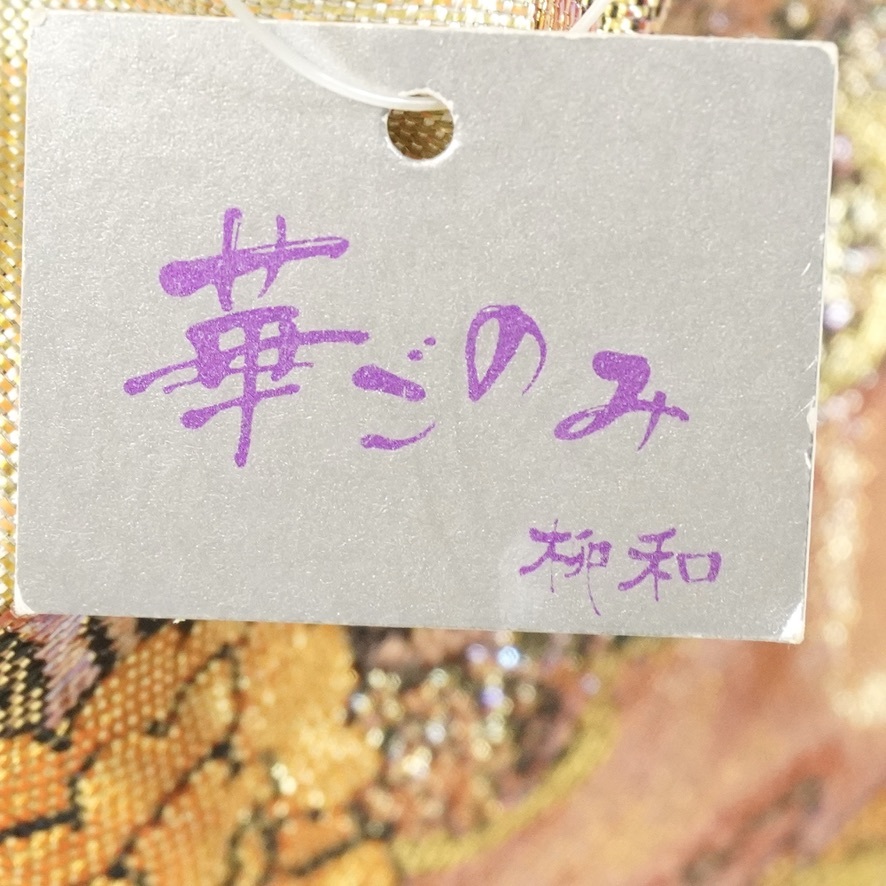 華ごのみ
柳和